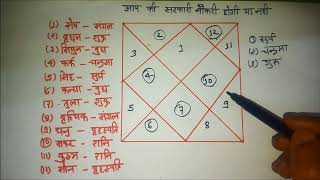 आप की सरकारी नौकरी होगी या नहीं
(१) मेष - मंगल
(२) वृषभ - शुक्र
(३) मिथुन - बुध
(४) कर्क - चन्द्रमा
(५) सिंह - सूर्य
(६) कन्या - बुध
(७) तुला - शुक्र
(८) वृश्चिक - मंगल
(९) धनु - बृहस्पति
(१०) मकर - शनि
(११) कुम्भ - शनि
(१२) मीन - बृहस्पति
2 12
3 1 11
4 10
5 7 9
6 8
① सूर्य
(२) चन्द्रमा
(३) गुरु